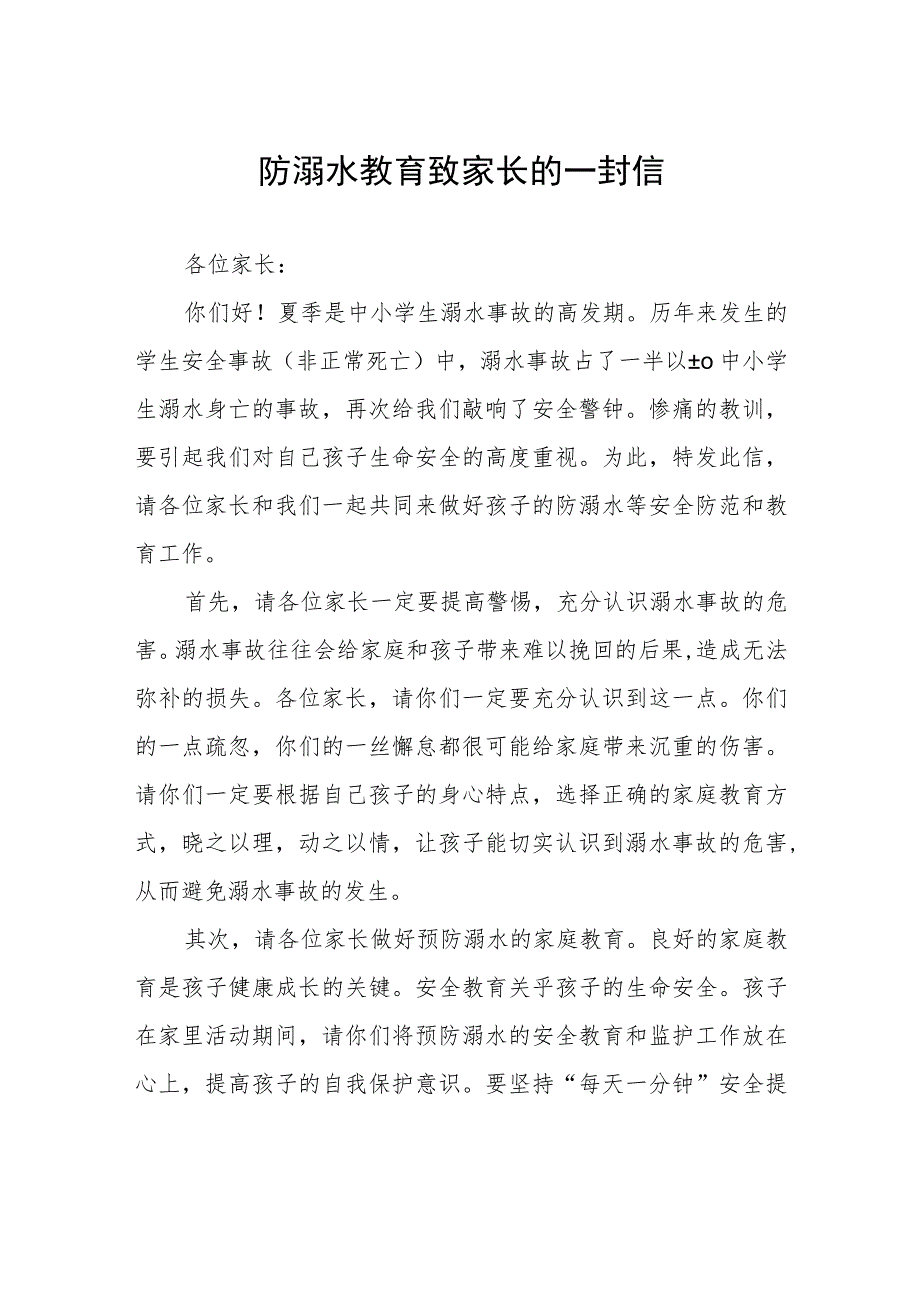 防溺水教育致家长的一封信
各位家长：
你们好！夏季是中小学生溺水事故的高发期。历年来发生的
学生安全事故（非正常死亡）中，溺水事故占了一半以±o中小学
生溺水身亡的事故，再次给我们敲响了安全警钟。惨痛的教训，
要引起我们对自己孩子生命安全的高度重视。为此，特发此信，
请各位家长和我们一起共同来做好孩子的防溺水等安全防范和教
育工作。
首先，请各位家长一定要提高警惕，充分认识溺水事故的危
害。溺水事故往往会给家庭和孩子带来难以挽回的后果,造成无法
弥补的损失。各位家长，请你们一定要充分认识到这一点。你们
的一点疏忽，你们的一丝懈怠都很可能给家庭带来沉重的伤害。
请你们一定要根据自己孩子的身心特点，选择正确的家庭教育方
式，晓之以理，动之以情，让孩子能切实认识到溺水事故的危害,
从而避免溺水事故的发生。
其次，请各位家长做好预防溺水的家庭教育。良好的家庭教
育是孩子健康成长的关键。安全教育关乎孩子的生命安全。孩子
在家里活动期间，请你们将预防溺水的安全教育和监护工作放在
心上，提高孩子的自我保护意识。要坚持“每天一分钟”安全提